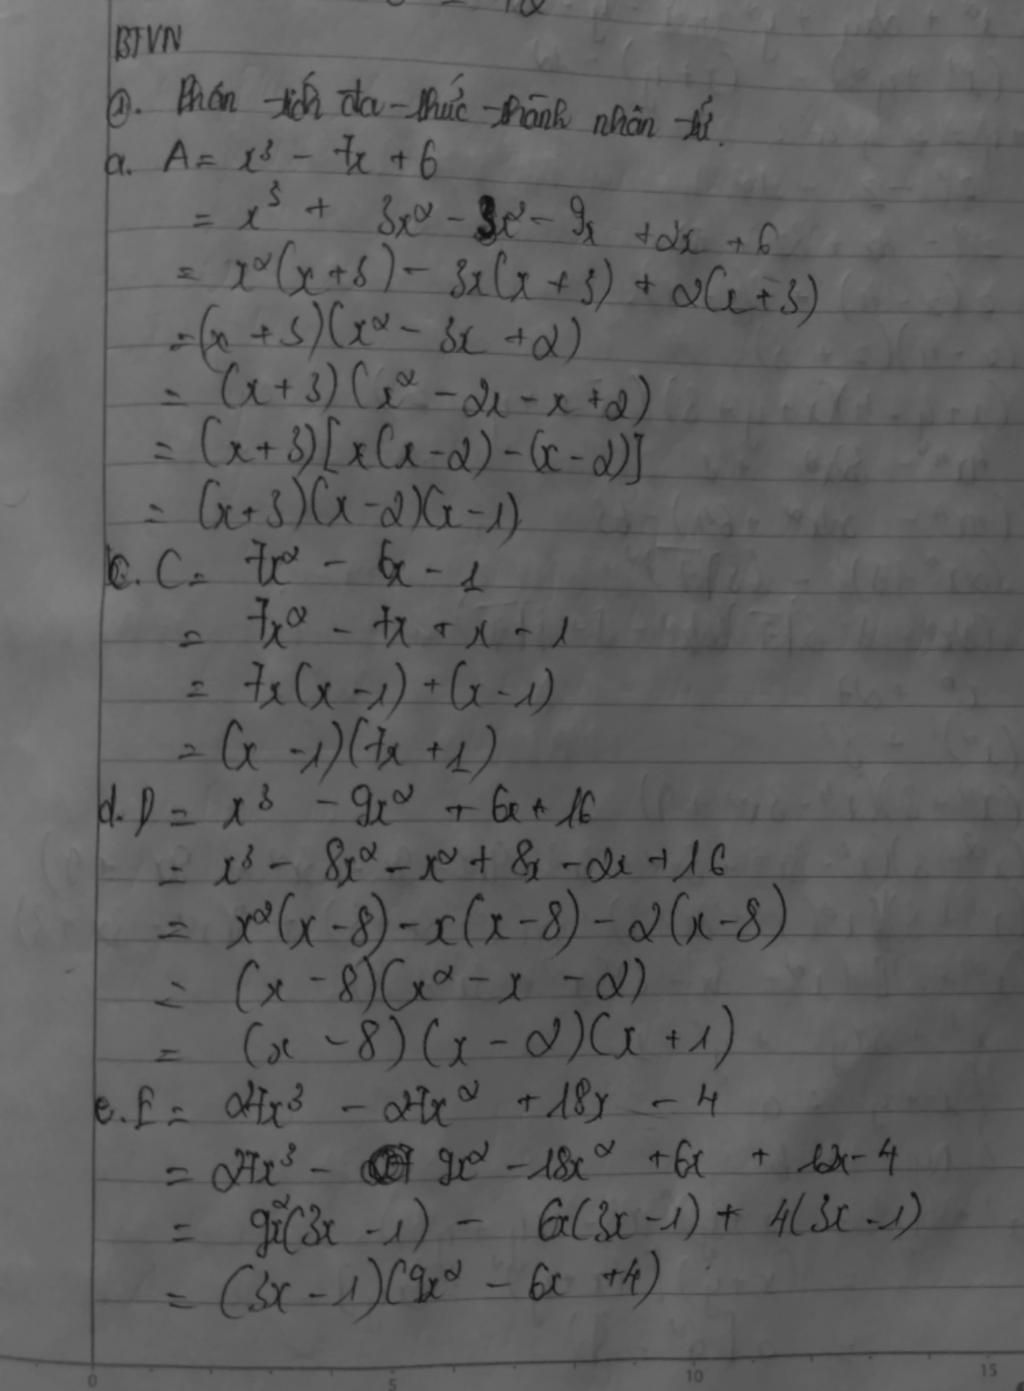 BTVN
①. Phân tích đa thức thành nhân tử.
a. A = x³ - 7x + 6
= x³ + 3x² - 3x² - 9x + 2x + 6
= x²(x+3) - 3x(x+3) + 2(x+3)
= (x+3)(x² - 3x + 2)
= (x+3)(x² - 2x - x + 2)
= (x+3)[x(x-2) - (x-2)]
= (x+3)(x-2)(x-1)
c. C = 7x² - 6x - 1
= 7x² - 7x + x - 1
= 7x(x-1) + (x-1)
= (x-1)(7x+1)
d. D = x³ - 9x² + 6x + 16
= x³ - 8x² - x² + 8x - 2x + 16
= x²(x-8) - x(x-8) - 2(x-8)
= (x-8)(x² - x - 2)
= (x-8)(x-2)(x+1)
e. E = 27x³ - 27x² + 18x - 4
= 27x³ - 9x² - 18x² + 6x + 12x - 4
= 9x²(3x-1) - 6x(3x-1) + 4(3x-1)
= (3x-1)(9x² - 6x + 4)
0 5 10 15